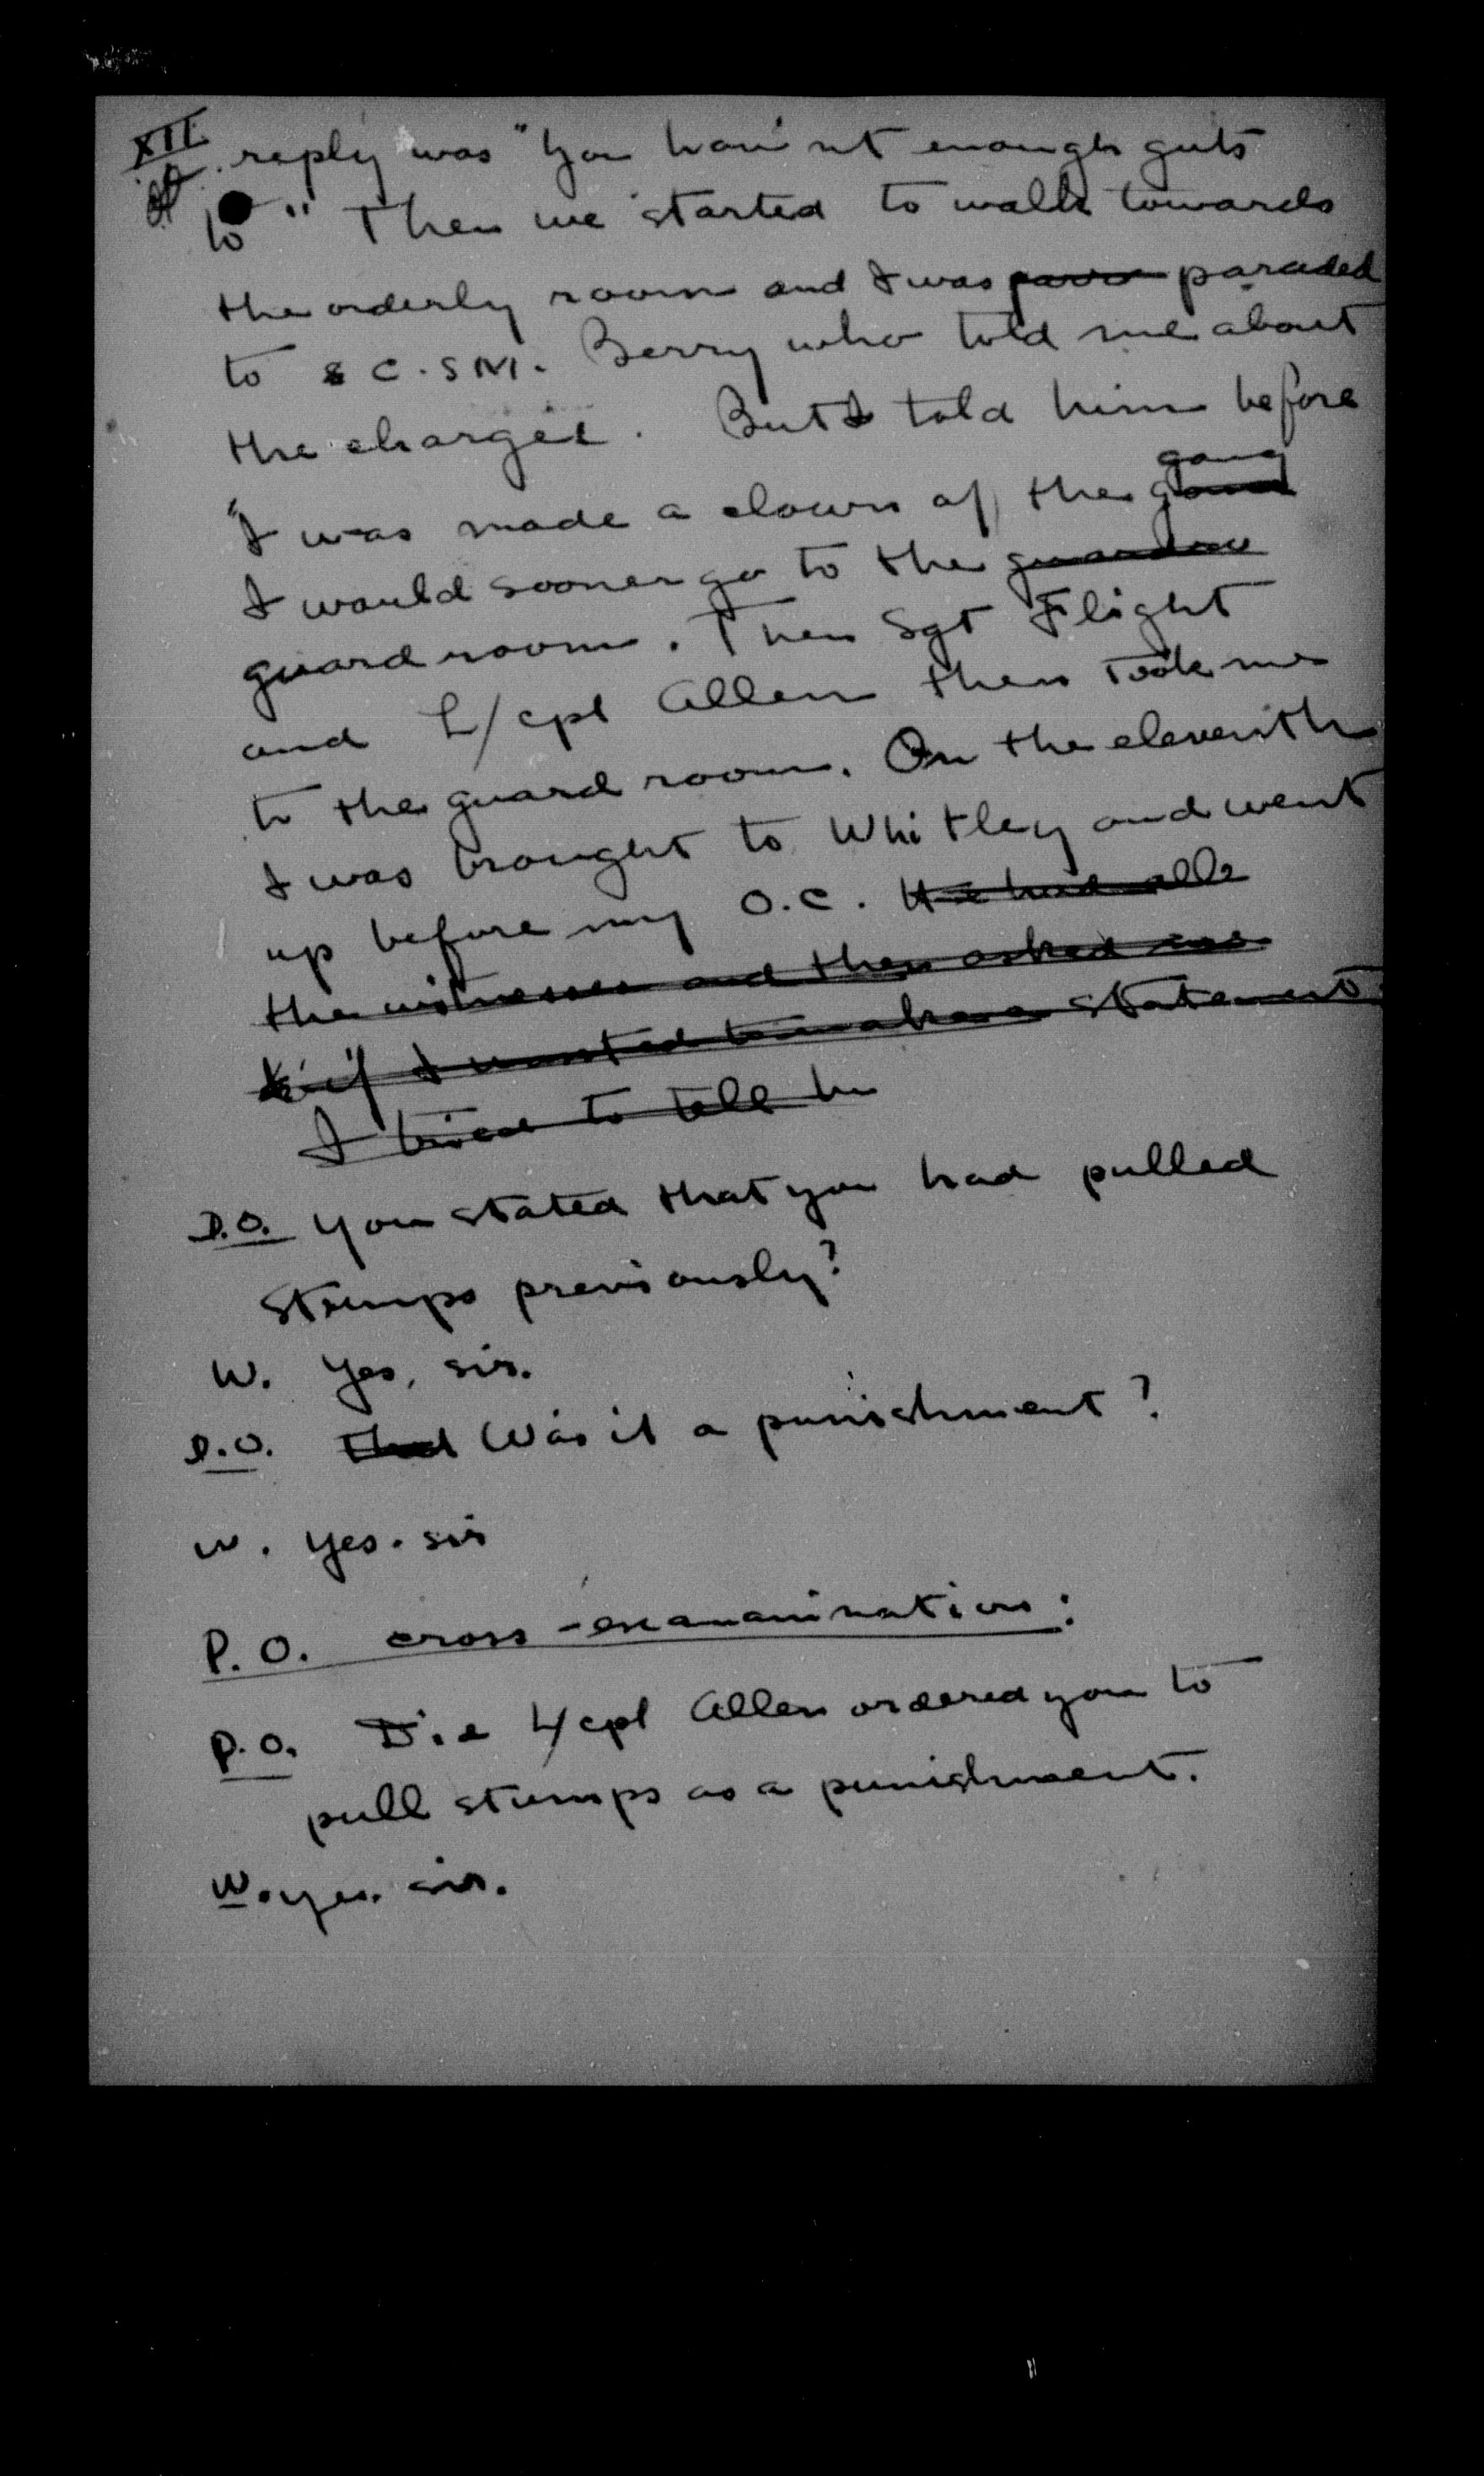 XII reply was "You have'nt enough guts
to" Then we started to walk towards
the orderly room and I was paraded
to C.S.M. Berry who told me about
the charges. But I told him before
gang
"I was made a clown of the
I would sooner go to the
guardroom. Then Sgt Flight
and L/cpl Allen then took me
to the guard room. On the eleventh
I was brought to Whitley and went
up before my O.C. He had all
the witnesses and then asked me
if I wanted to make a statement
I tried to tell hi
D.O. You stated that you had pulled
stumps previously?
W. Yes, sir.
D.O. Was it a punishment?
W. Yes. sir
P.O. cross-examanination:
P.O. Did L/cpl Allen ordered you to
pull stumps as a punishment.
W. yes. sir.